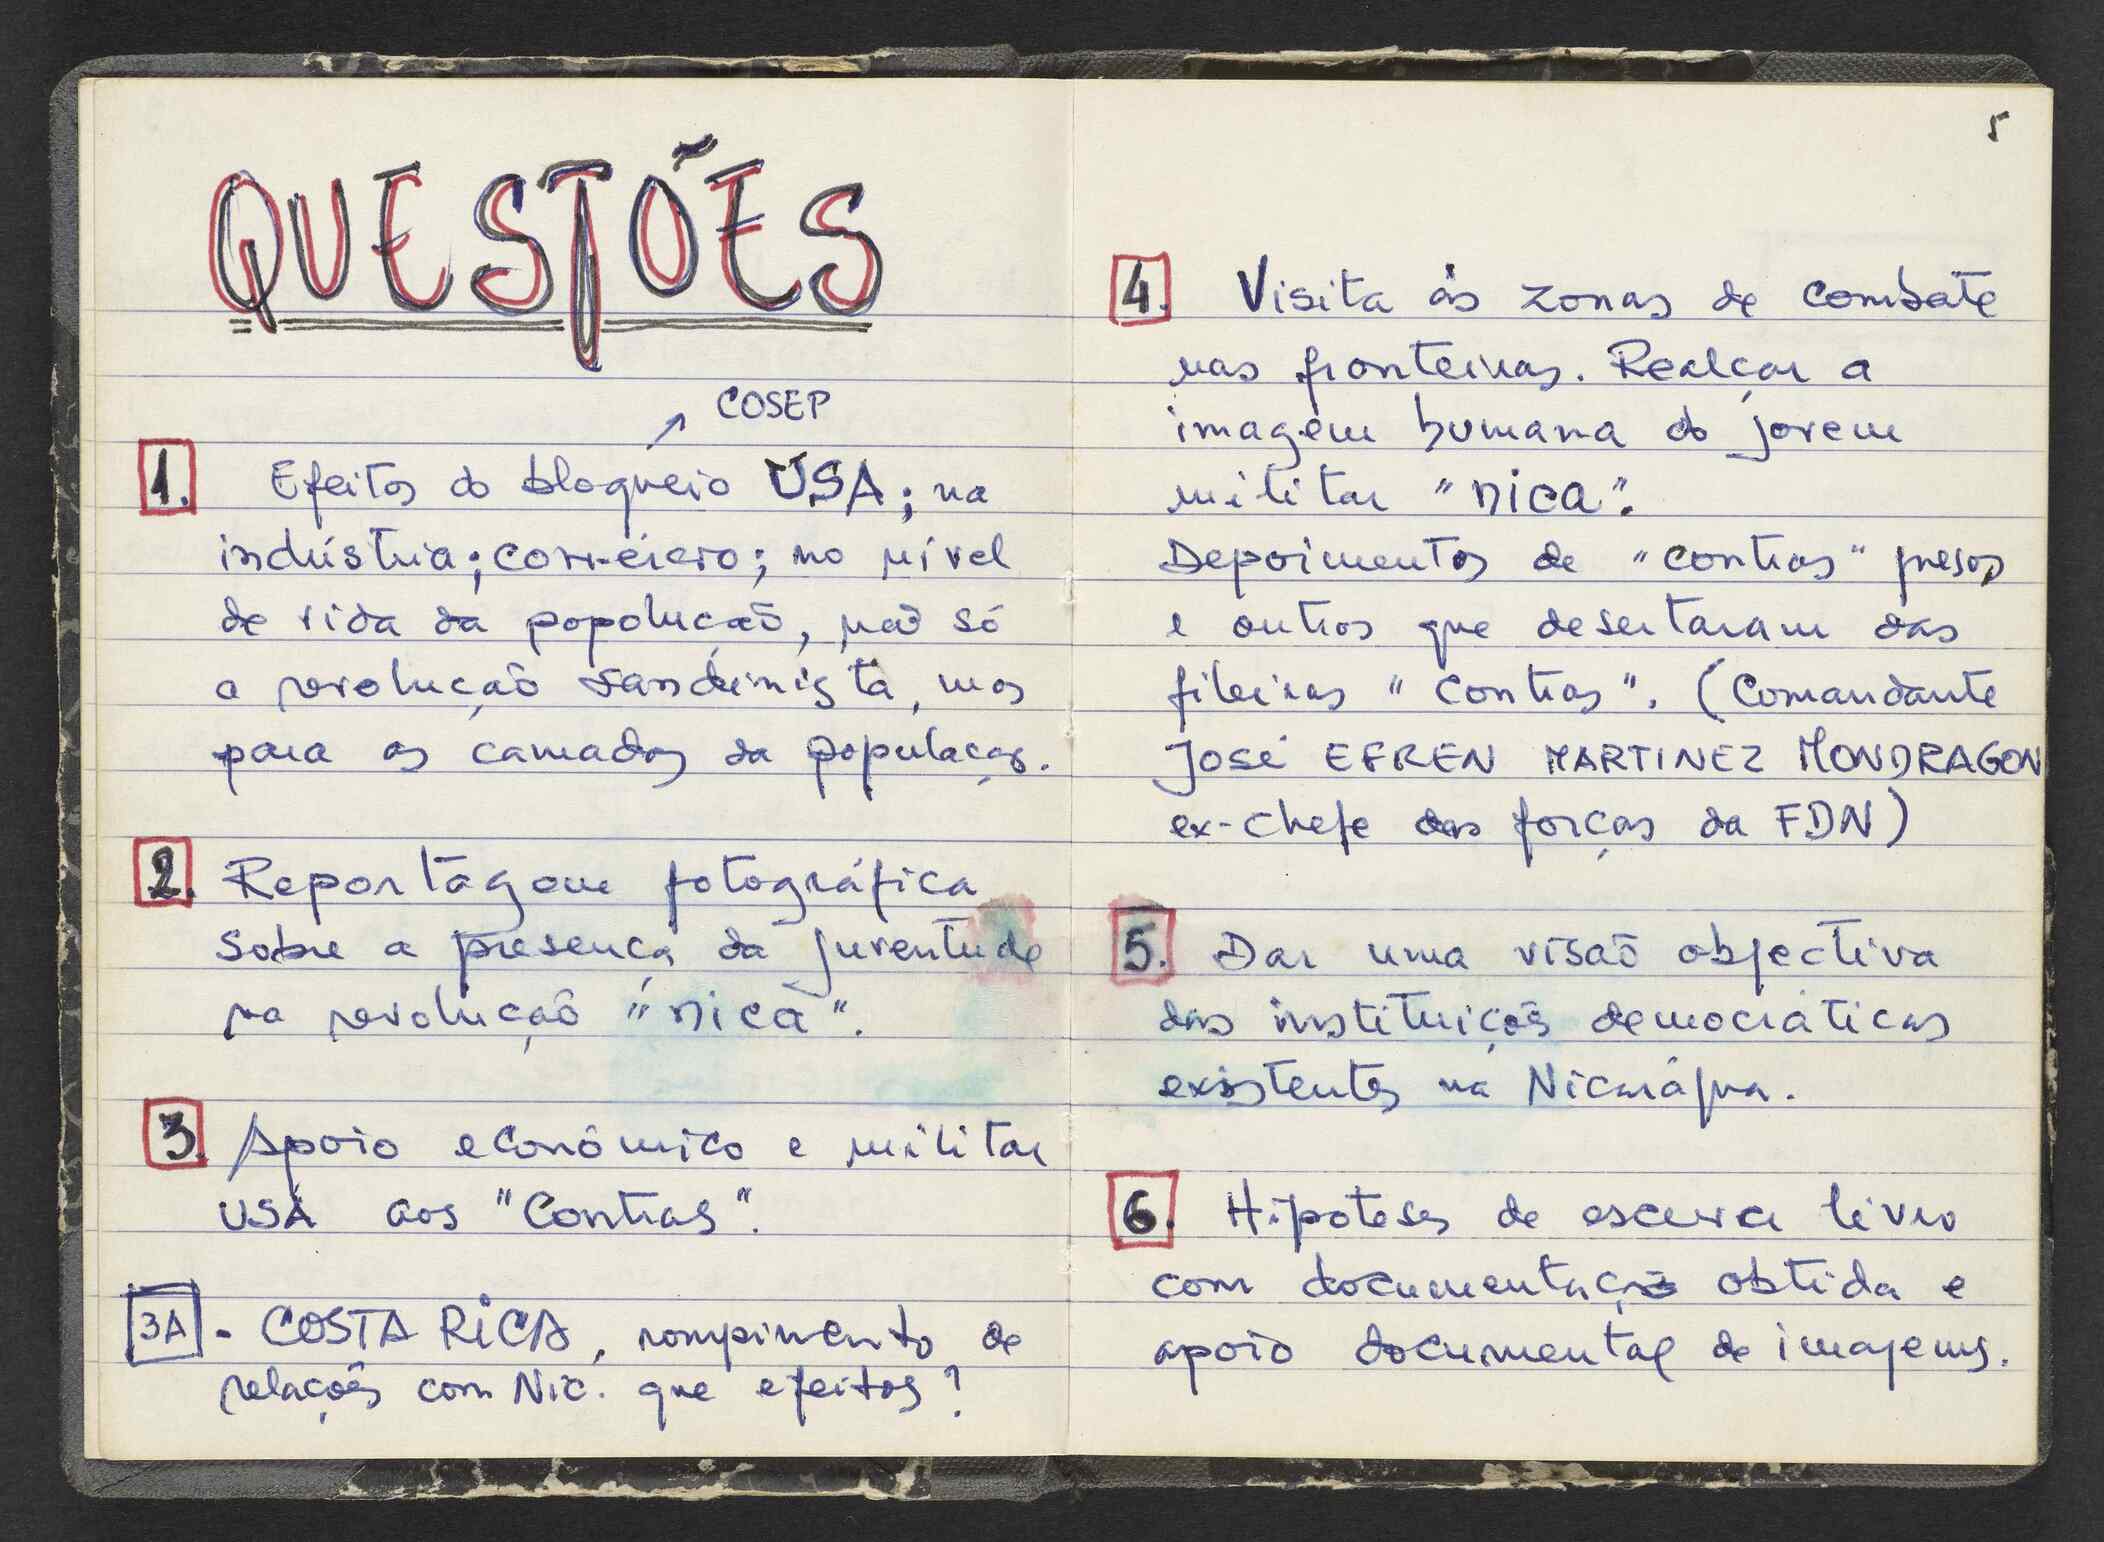 QUESTÕES
COSEP
1. Efeitos do bloqueio USA; na
indústria; comércio; no nível
de vida da popolução, não só
a revolução sandinista, mas
para as camadas da população.
2. Reportagem fotográfica
sobre a presença da juventude
na revolução "nica".
3. Apoio económico e militar
USA aos "Contras".
3A - COSTA RICA, rompimento de
relações com Nic. que efeitos?
5
4. Visita às zonas de combate
nas fronteiras. Realçar a
imagem humana do jovem
militar "nica".
Depoimentos de "contras" presos
e outros que desertaram das
fileiras "contras". (Comandante
José EFREN MARTINEZ MONDRAGON
ex-chefe das forças da FDN)
5. Dar uma visão objectiva
das instituições democráticas
existentes na Nicarágua.
6. Hipoteses de escrever livro
com documentação obtida e
apoio documental de imagens.